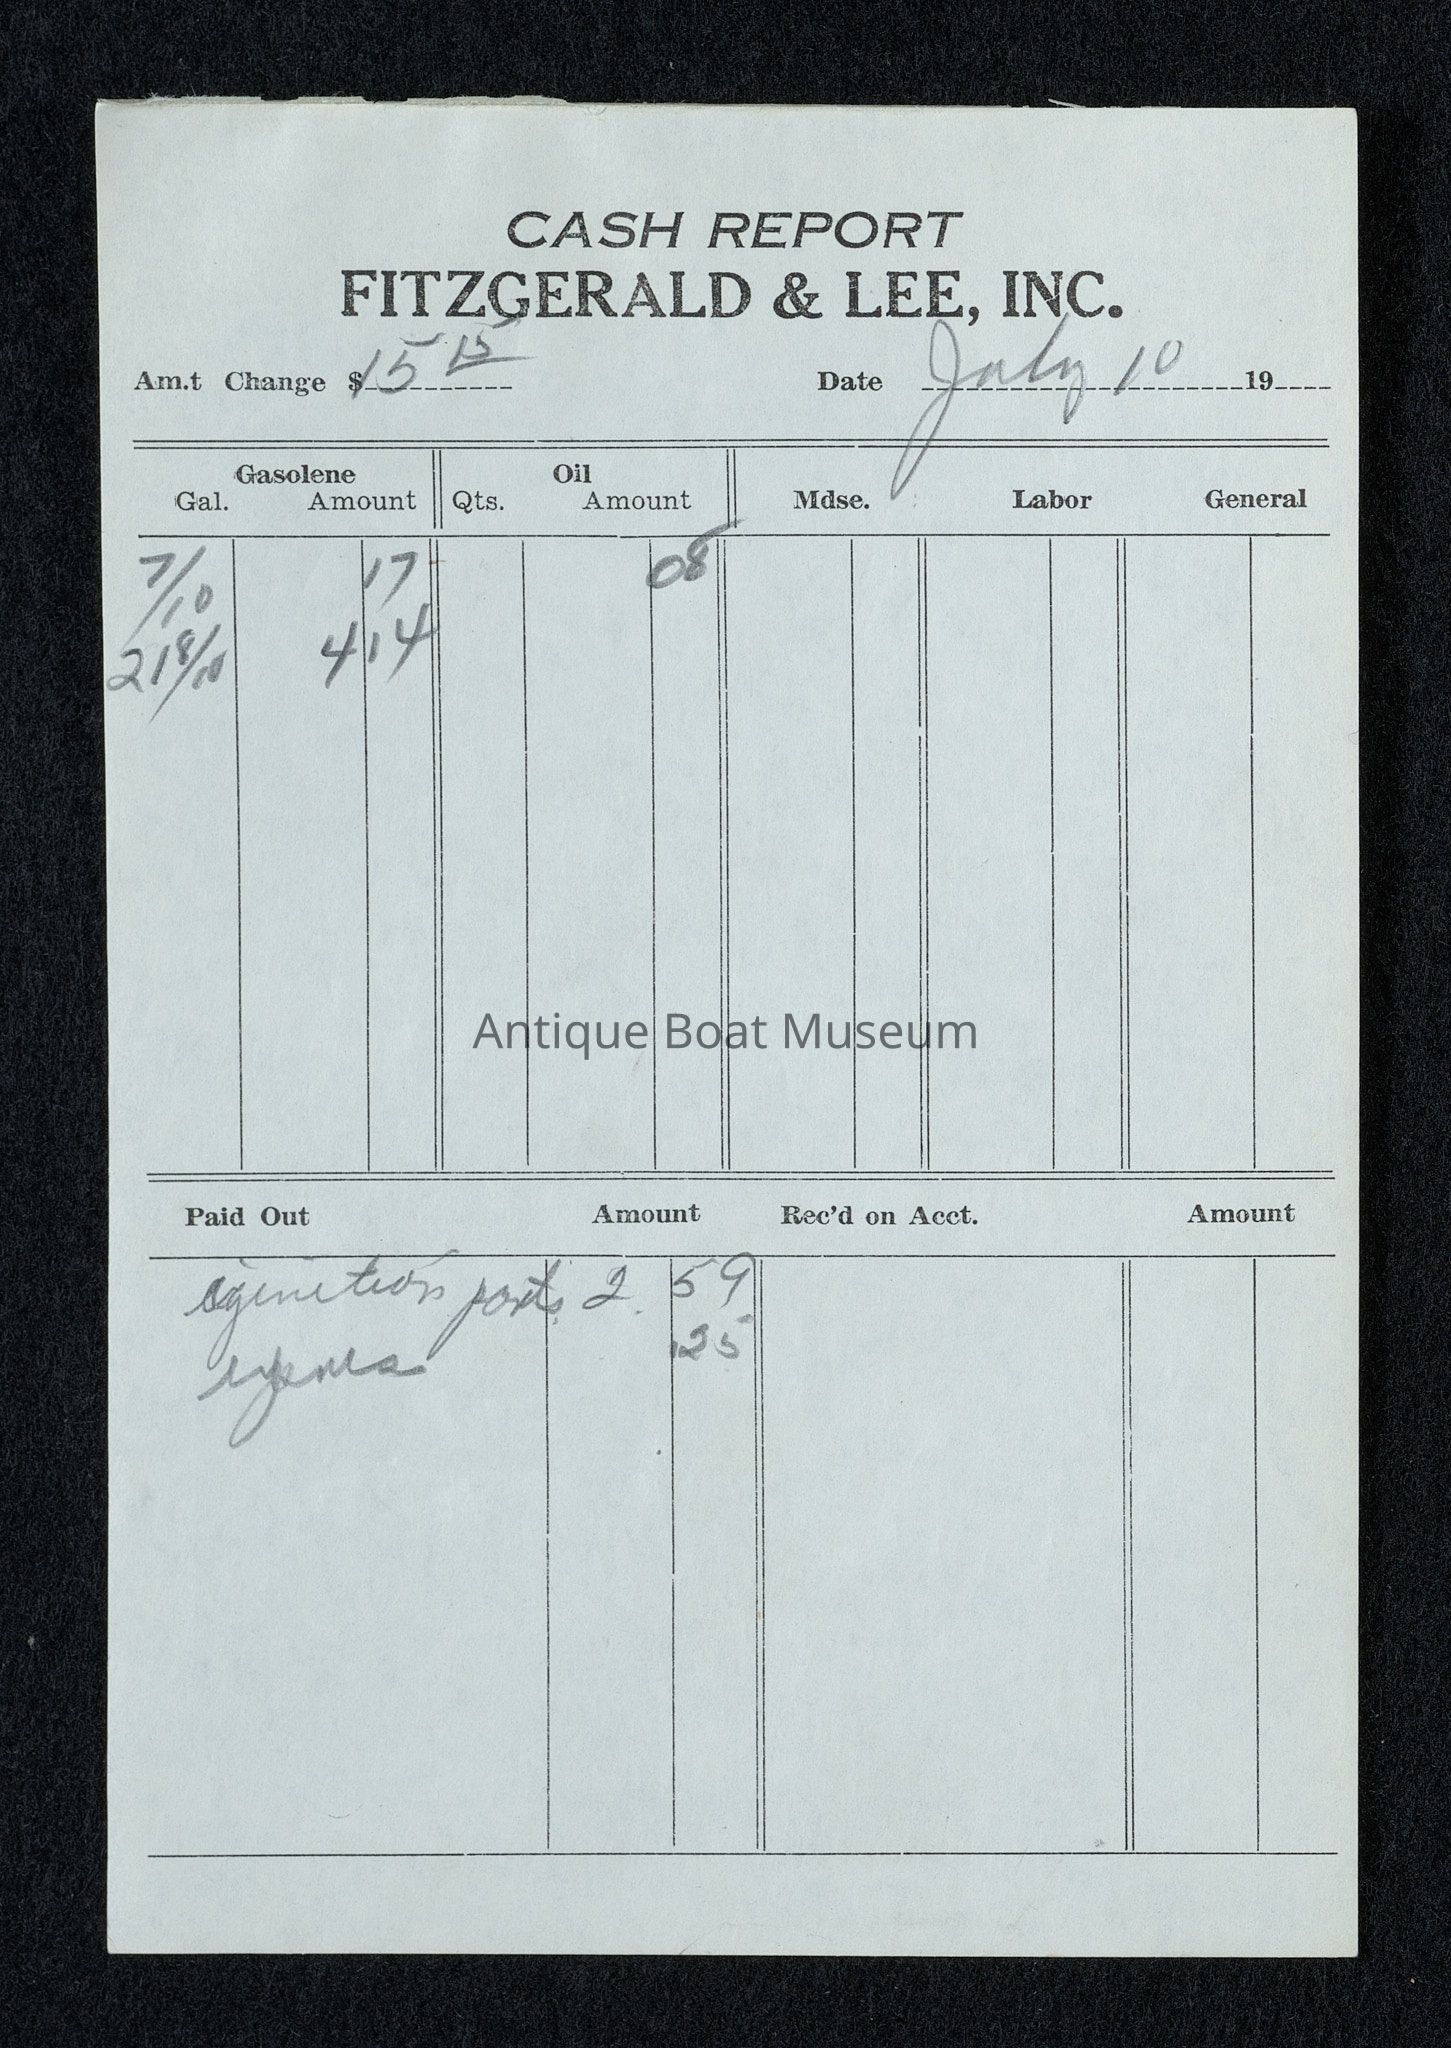 CASH REPORT
FITZGERALD & LEE, INC.
Am.t Change $ 15 15 Date July 10 19
Gasolene Oil
Gal. Amount Qts. Amount Mdse. Labor General
7/10 17 08
21 8/10 4 14
Antique Boat Museum
Paid Out Amount Rec'd on Acct. Amount
parts 2. 59
.25